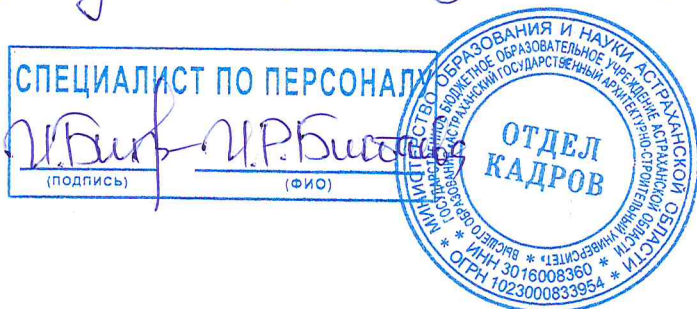 СПЕЦИАЛИСТ ПО ПЕРСОНАЛУ
И.Р.
(ПОДПИСЬ)
(ФИО)
* МИНИСТЕРСТВО ОБРАЗОВАНИЯ И НАУКИ АСТРАХАНСКОЙ ОБЛАСТИ *
ОГРН 1023000833954
ГОСУДАРСТВЕННОЕ БЮДЖЕТНОЕ ОБРАЗОВАТЕЛЬНОЕ УЧРЕЖДЕНИЕ АСТРАХАНСКОЙ ОБЛАСТИ
ВЫСШЕГО ОБРАЗОВАНИЯ «АСТРАХАНСКИЙ ГОСУДАРСТВЕННЫЙ АРХИТЕКТУРНО-СТРОИТЕЛЬНЫЙ УНИВЕРСИТЕТ»
* ИНН 3016008360 *
ОТДЕЛ
КАДРОВ